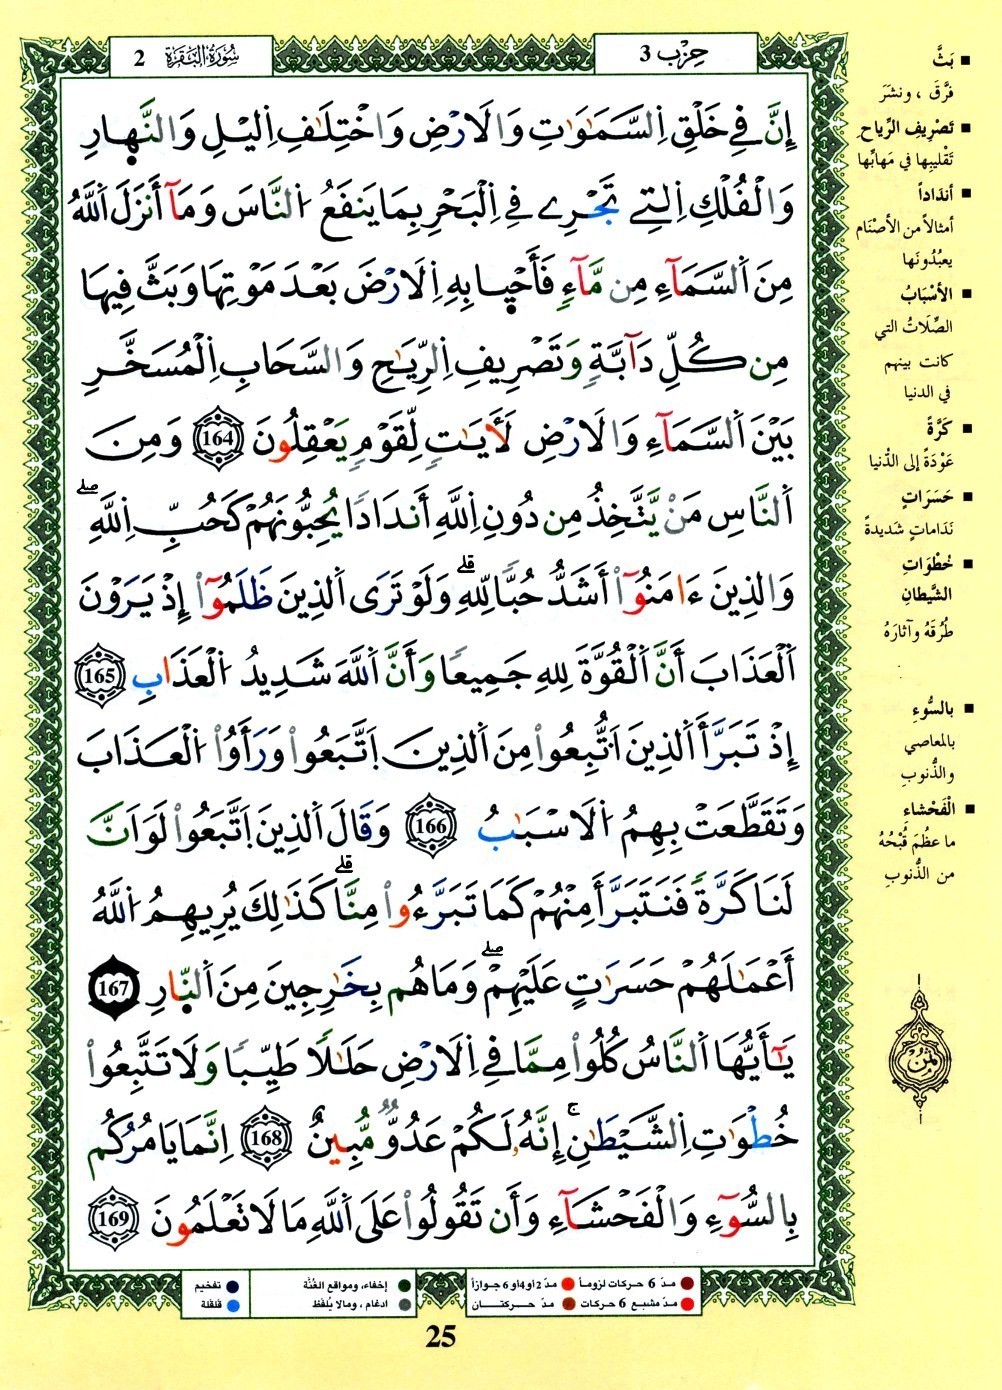 سُورَةُ البَقَرَةِ 2
حِزْب 3
إِنَّ فِے خَلْقِ اِ۬لسَّمَٰوَٰتِ وَالَارْضِ وَاخْتِلَٰفِ اِ۬ليْلِ وَالنَّهارِ
وَالْفُلْكِ اِ۬لتِے تَجْرِے فِے اِ۬لْبَحْرِ بِمَا يَنفَعُ اُ۬لنَّاسَ وَمَآ أَنزَلَ اَ۬للَّهُ
مِنَ اَ۬لسَّمَآءِ مِن مَّآءٖ فَأَحْي۪ا بِهِ اِ۬لَارْضَ بَعْدَ مَوْتِهَا وَبَثَّ فِيهَا
مِن كُلِّ دَآبَّةٖ وَتَصْرِيفِ اِ۬لرِّيَٰحِ وَالسَّحَابِ اِ۬لْمُسَخَّرِ
بَيْنَ اَ۬لسَّمَآءِ وَالَارْضِ لَأٓيَٰتٖ لِّقَوْمٖ يَعْقِلُونَ 164 وَمِنَ
اَ۬لنَّاسِ مَنْ يَّتَّخِذُ مِن دُونِ اِ۬للَّهِ أَندَادٗا يُحِبُّونَهُمْ كَحُبِّ اِ۬للَّهِۖ
وَالذِينَ ءَامَنُوٓاْ أَشَدُّ حُبّٗا لِّلهِۗ وَلَوْ تَرَى اَ۬لذِينَ ظَلَمُوٓاْ إِذْ يَرَوْنَ
اَ۬لْعَذَابَ أَنَّ اَ۬لْقُوَّةَ لِلهِ جَمِيعٗا وَأَنَّ اَ۬للَّهَ شَدِيدُ اُ۬لْعَذَابِ 165
إِذْ تَبَرَّأَ اَ۬لذِينَ اَ۪تُّبِعُواْ مِنَ اَ۬لذِينَ اَ۪تَّبَعُواْ وَرَأَوُاْ اُ۬لْعَذَابَ
وَتَقَطَّعَتْ بِهِمُ اُ۬لَاسْبَٰبُ 166 وَقَالَ اَ۬لذِينَ اَ۪تَّبَعُواْ لَوَ اَنَّ
لَنَا كَرَّةٗ فَنَتَبَرَّأَ مِنْهُمْ كَمَا تَبَرَّءُواْ مِنَّاۗ كَذَٰلِكَ يُرِيهِمُ اُ۬للَّهُ
أَعْمَٰلَهُمْ حَسَرَٰتٍ عَلَيْهِمْۖ وَمَا هُم بِخَٰرِجِينَ مِنَ اَ۬لنّ۪ارِ 167
يَٰٓأَيُّهَا اَ۬لنَّاسُ كُلُواْ مِمَّا فِے اِ۬لَارْضِ حَلَٰلٗا طَيِّبٗا وَلَا تَتَّبِعُواْ
خُطْوَٰتِ اِ۬لشَّيْطَٰنِ إِنَّهُۥ لَكُمْ عَدُوّٞ مُّبِينٌ 168 اِنَّمَا يَامُرُكُم
بِالسُّوٓءِ وَالْفَحْشَآءِ وَأَن تَقُولُواْ عَلَى اَ۬للَّهِ مَا لَا تَعْلَمُونَ 169
بَثَّ
فرَّقَ ، ونشَرَ
تَصْرِيفِ الرِّياحِ
تَقْلِيبِها في مَهابِّها
أندَاداً
أمثالاً من الأصْنَام
يعبُدُونَها
الأسْبَابُ
الصِّلَاتُ التي
كانت بينهم
في الدنيا
كَرَّةً
عَوْدَةً إلى الدُّنيا
حَسَرَاتٍ
نَدَاماتٍ شَديدةً
خُطْوَاتِ
الشَّيطانِ
طُرُقَهُ وآثارَهُ
بالسُّوءِ
بالمعاصي
والذُّنوبِ
الْفَحْشاء
ما عظُمَ قُبْحُهُ
من الذُّنوبِ
ثمن
مدّ 6 حركات لزوماً
مدّ 2 أو 4 أو 6 جوازاً
إخفاء، ومواقع الغُنَّة
تفخيم
مدّ مشبع 6 حركات
مدّ حركتان
ادغام ، ومالا يُلفَظ
قلقلة
25